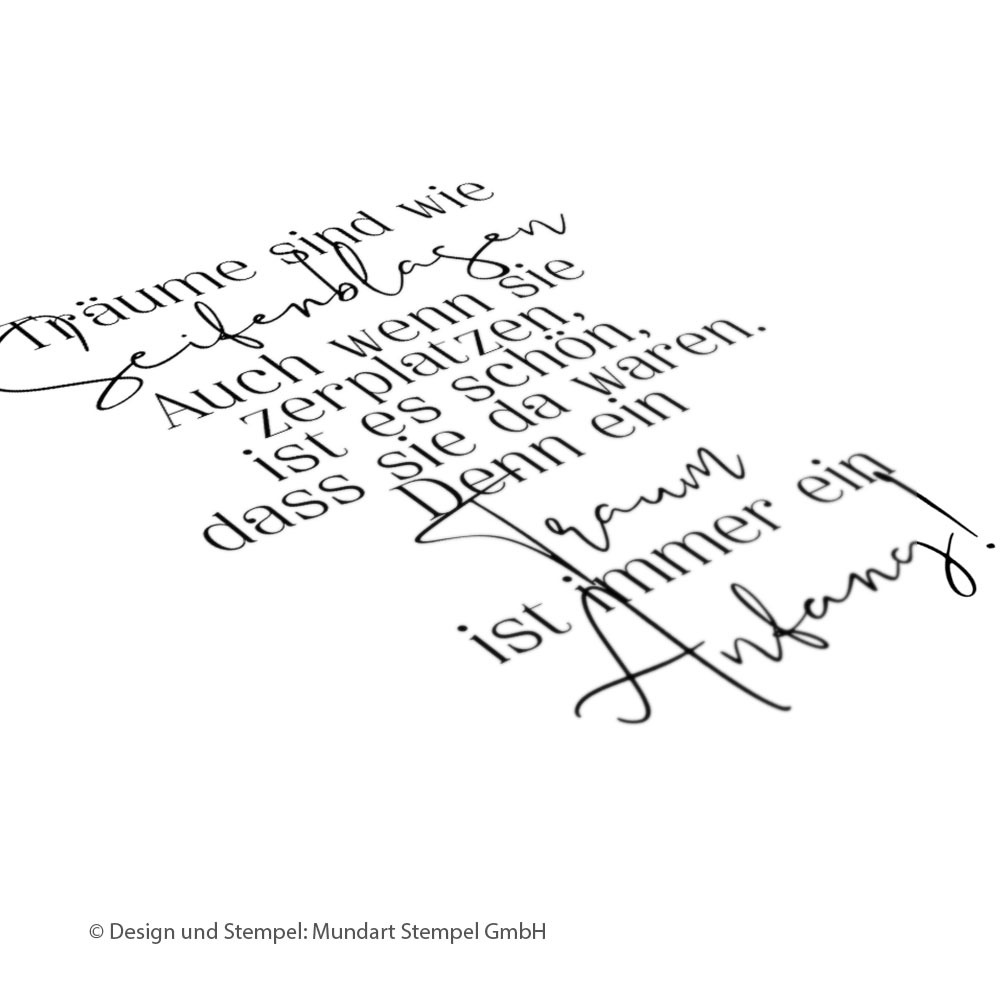 Träume sind wie
Seifenblasen
Auch wenn sie
zerplatzen,
ist es schön,
dass sie da waren.
Denn ein
Traum
ist immer ein
Anfang!
© Design und Stempel: Mundart Stempel GmbH